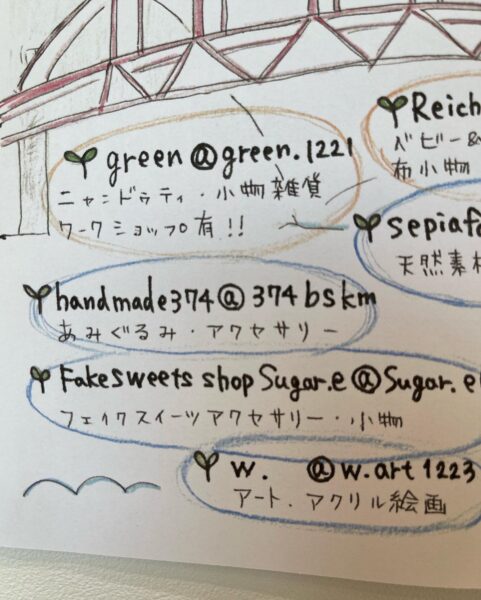 green @green.1221
ニャンドゥティ・小物雑貨
ワークショップ有!!
Reich
ベビー&
布小物
sepiafa
天然素材
handmade374@374bskm
あみぐるみ・アクセサリー
Fakesweets shop Sugar.e @Sugar.e
フェイクスイーツアクセサリー・小物
w. @w.art1223
アート.アクリル絵画